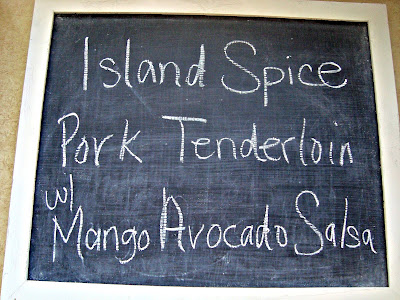 Island Spice
Pork Tenderloin
w/
Mango Avocado Salsa